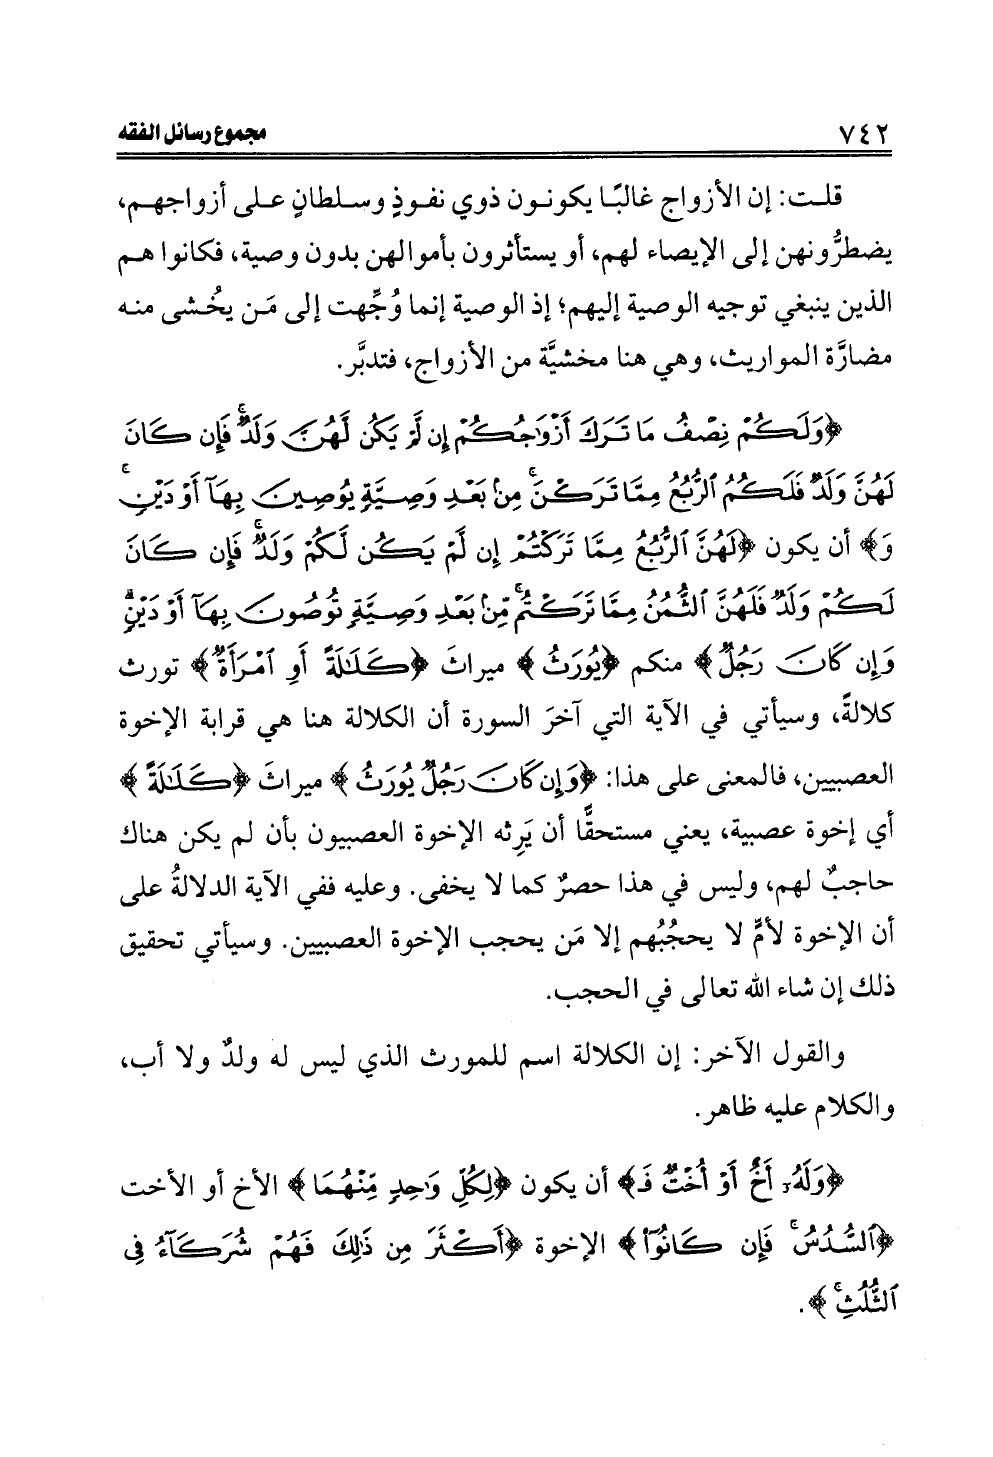 ٧٤٢ مجموع رسائل الفقه
قلت: إن الأزواج غالبًا يكونون ذوي نفوذٍ وسلطانٍ على أزواجهم،
يضطرُّونهن إلى الإيصاء لهم، أو يستأثرون بأموالهن بدون وصية، فكانوا هم
الذين ينبغي توجيه الوصية إليهم؛ إذ الوصية إنما وُجِّهت إلى مَن يخُشى منه
مضارَّة المواريث، وهي هنا مخشيَّة من الأزواج، فتدبَّر.
﴿وَلَكُمْ نِصْفُ مَا تَرَكَ أَزْوَٰجُكُمْ إِن لَّمْ يَكُن لَّهُنَّ وَلَدٌ ۚ فَإِن كَانَ
لَهُنَّ وَلَدٌ فَلَكُمُ ٱلرُّبُعُ مِمَّا تَرَكْنَ ۚ مِنۢ بَعْدِ وَصِيَّةٍ يُوصِينَ بِهَآ أَوْ دَيْنٍ ۚ
وَ﴾ أن يكون ﴿لَهُنَّ ٱلرُّبُعُ مِمَّا تَرَكْتُمْ إِن لَّمْ يَكُن لَّكُمْ وَلَدٌ ۚ فَإِن كَانَ
لَكُمْ وَلَدٌ فَلَهُنَّ ٱلثُّمُنُ مِمَّا تَرَكْتُم ۚ مِّنۢ بَعْدِ وَصِيَّةٍ تُوصُونَ بِهَآ أَوْ دَيْنٍ ۗ
وَإِن كَانَ رَجُلٌ﴾ منكم ﴿يُورَثُ﴾ ميراثَ ﴿كَلَٰلَةً أَوِ ٱمْرَأَةٌ﴾ تورث
كلالةً، وسيأتي في الآية التي آخرَ السورة أن الكلالة هنا هي قرابة الإخوة
العصبيين، فالمعنى على هذا: ﴿وَإِن كَانَ رَجُلٌ يُورَثُ﴾ ميراثَ ﴿كَلَٰلَةً﴾
أي إخوة عصبية، يعني مستحقًّا أن يَرِثه الإخوة العصبيون بأن لم يكن هناك
حاجبٌ لهم، وليس في هذا حصرٌ كما لا يخفى. وعليه ففي الآية الدلالةُ على
أن الإخوة لأمٍّ لا يحجُبُهم إلا مَن يحجب الإخوة العصبيين. وسيأتي تحقيق
ذلك إن شاء الله تعالى في الحجب.
والقول الآخر: إن الكلالة اسم للمورث الذي ليس له ولدٌ ولا أب،
والكلام عليه ظاهر.
﴿وَلَهُۥٓ أَخٌ أَوْ أُخْتٌ فَـ﴾ أن يكون ﴿لِكُلِّ وَٰحِدٍ مِّنْهُمَا﴾ الأخ أو الأخت
﴿ٱلسُّدُسُ ۚ فَإِن كَانُوٓا۟﴾ الإخوة ﴿أَكْثَرَ مِن ذَٰلِكَ فَهُمْ شُرَكَآءُ فِى
ٱلثُّلُثِ ۚ﴾.